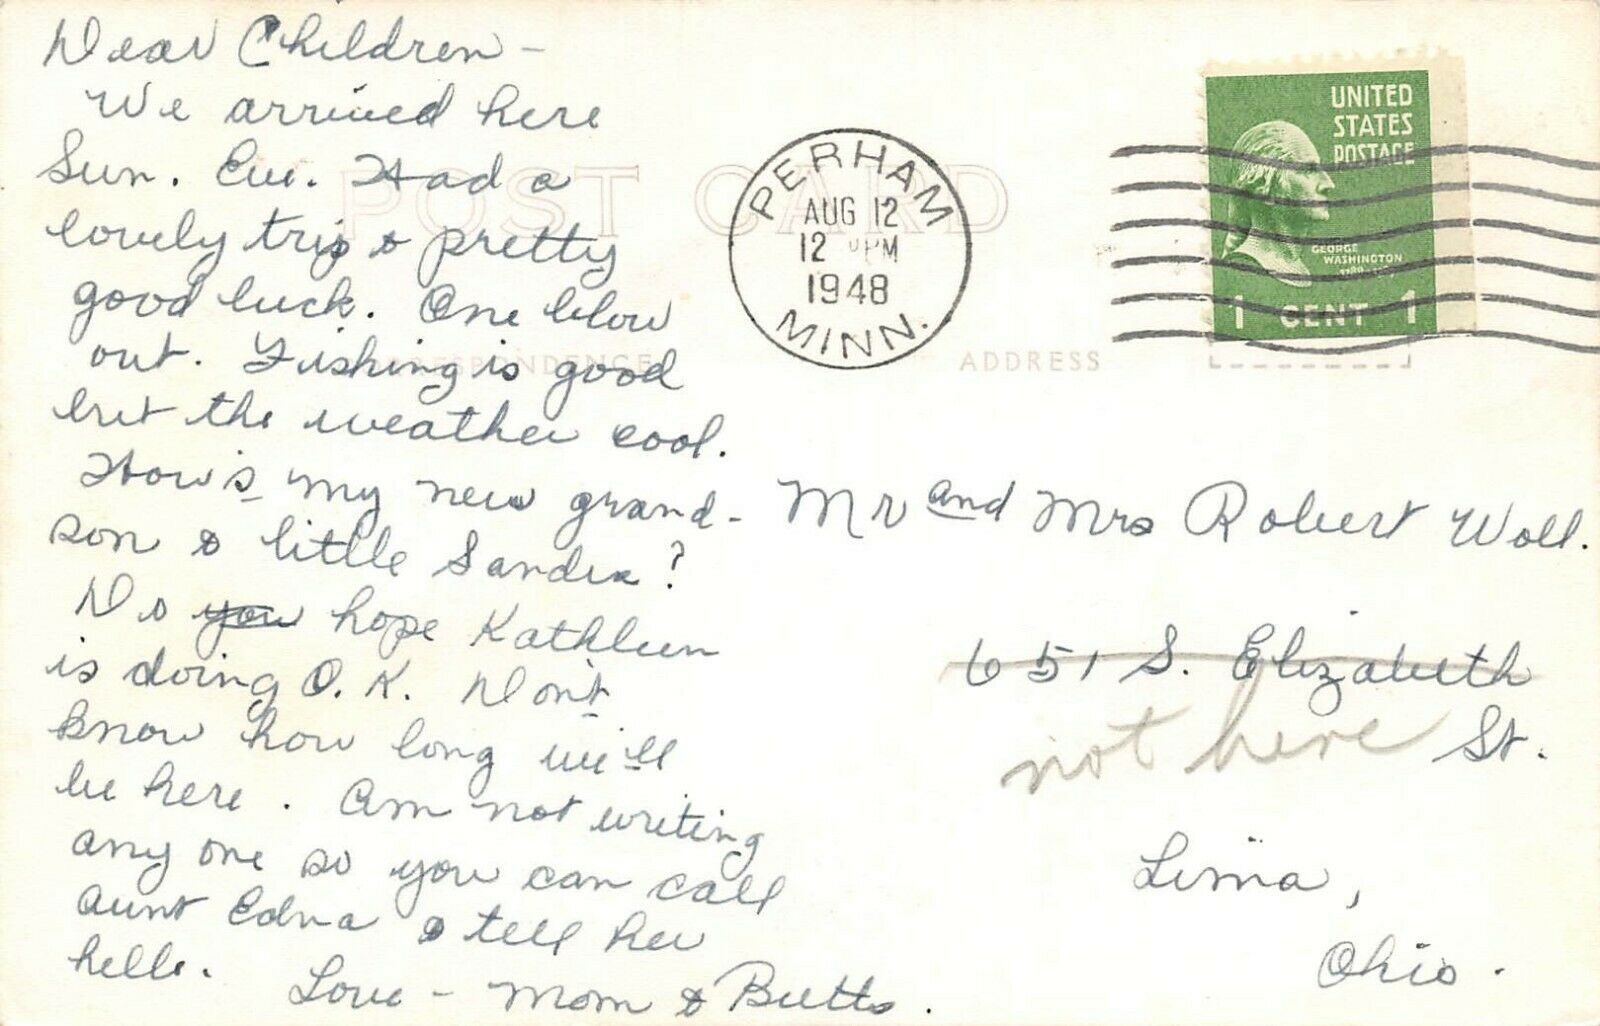 Dear Children -
We arrived here
Sun. Eve. Had a
lovely trip & pretty
good luck. One blow
out. Fishing is good
but the weather cool.
How's my new grand-
son & little Sandra?
Do you hope Kathleen
is doing O.K. Don't
know how long we'll
be here. Am not writing
any one so you can call
Aunt Edna & tell her
hello.
Love - Mom & Butts.
POST CARD
CORRESPONDENCE
ADDRESS
PERHAM
AUG 12
12 PM
1948
MINN.
UNITED
STATES
POSTAGE
GEORGE
WASHINGTON
1 CENT 1
Mr and Mrs Robert Woll.
651 S. Elizabeth
St.
not here
Lima,
Ohio.